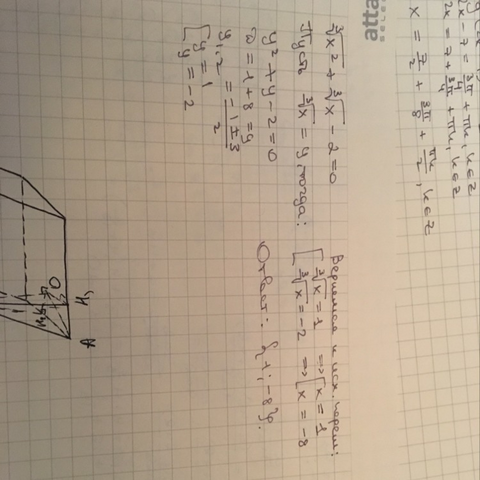 2x - 7 = 3π/4 + πk, k∈Z
2x = 7 + 3π/4 + πk, k∈Z
x = 7/2 + 3π/8 + πk/2, k∈Z
atta
SELE
∛x² + ∛x - 2 = 0
Пусть ∛x = y, тогда:
y² + y - 2 = 0
D = 1 + 8 = 9
y₁,₂ = (-1 ± 3)/2
[ y = 1
[ y = -2
Вернемся к исх. перем:
[ ∛x = 1 => [ x = 1
[ ∛x = -2 => [ x = -8
Ответ: {1; -8}.
O
H₁
A